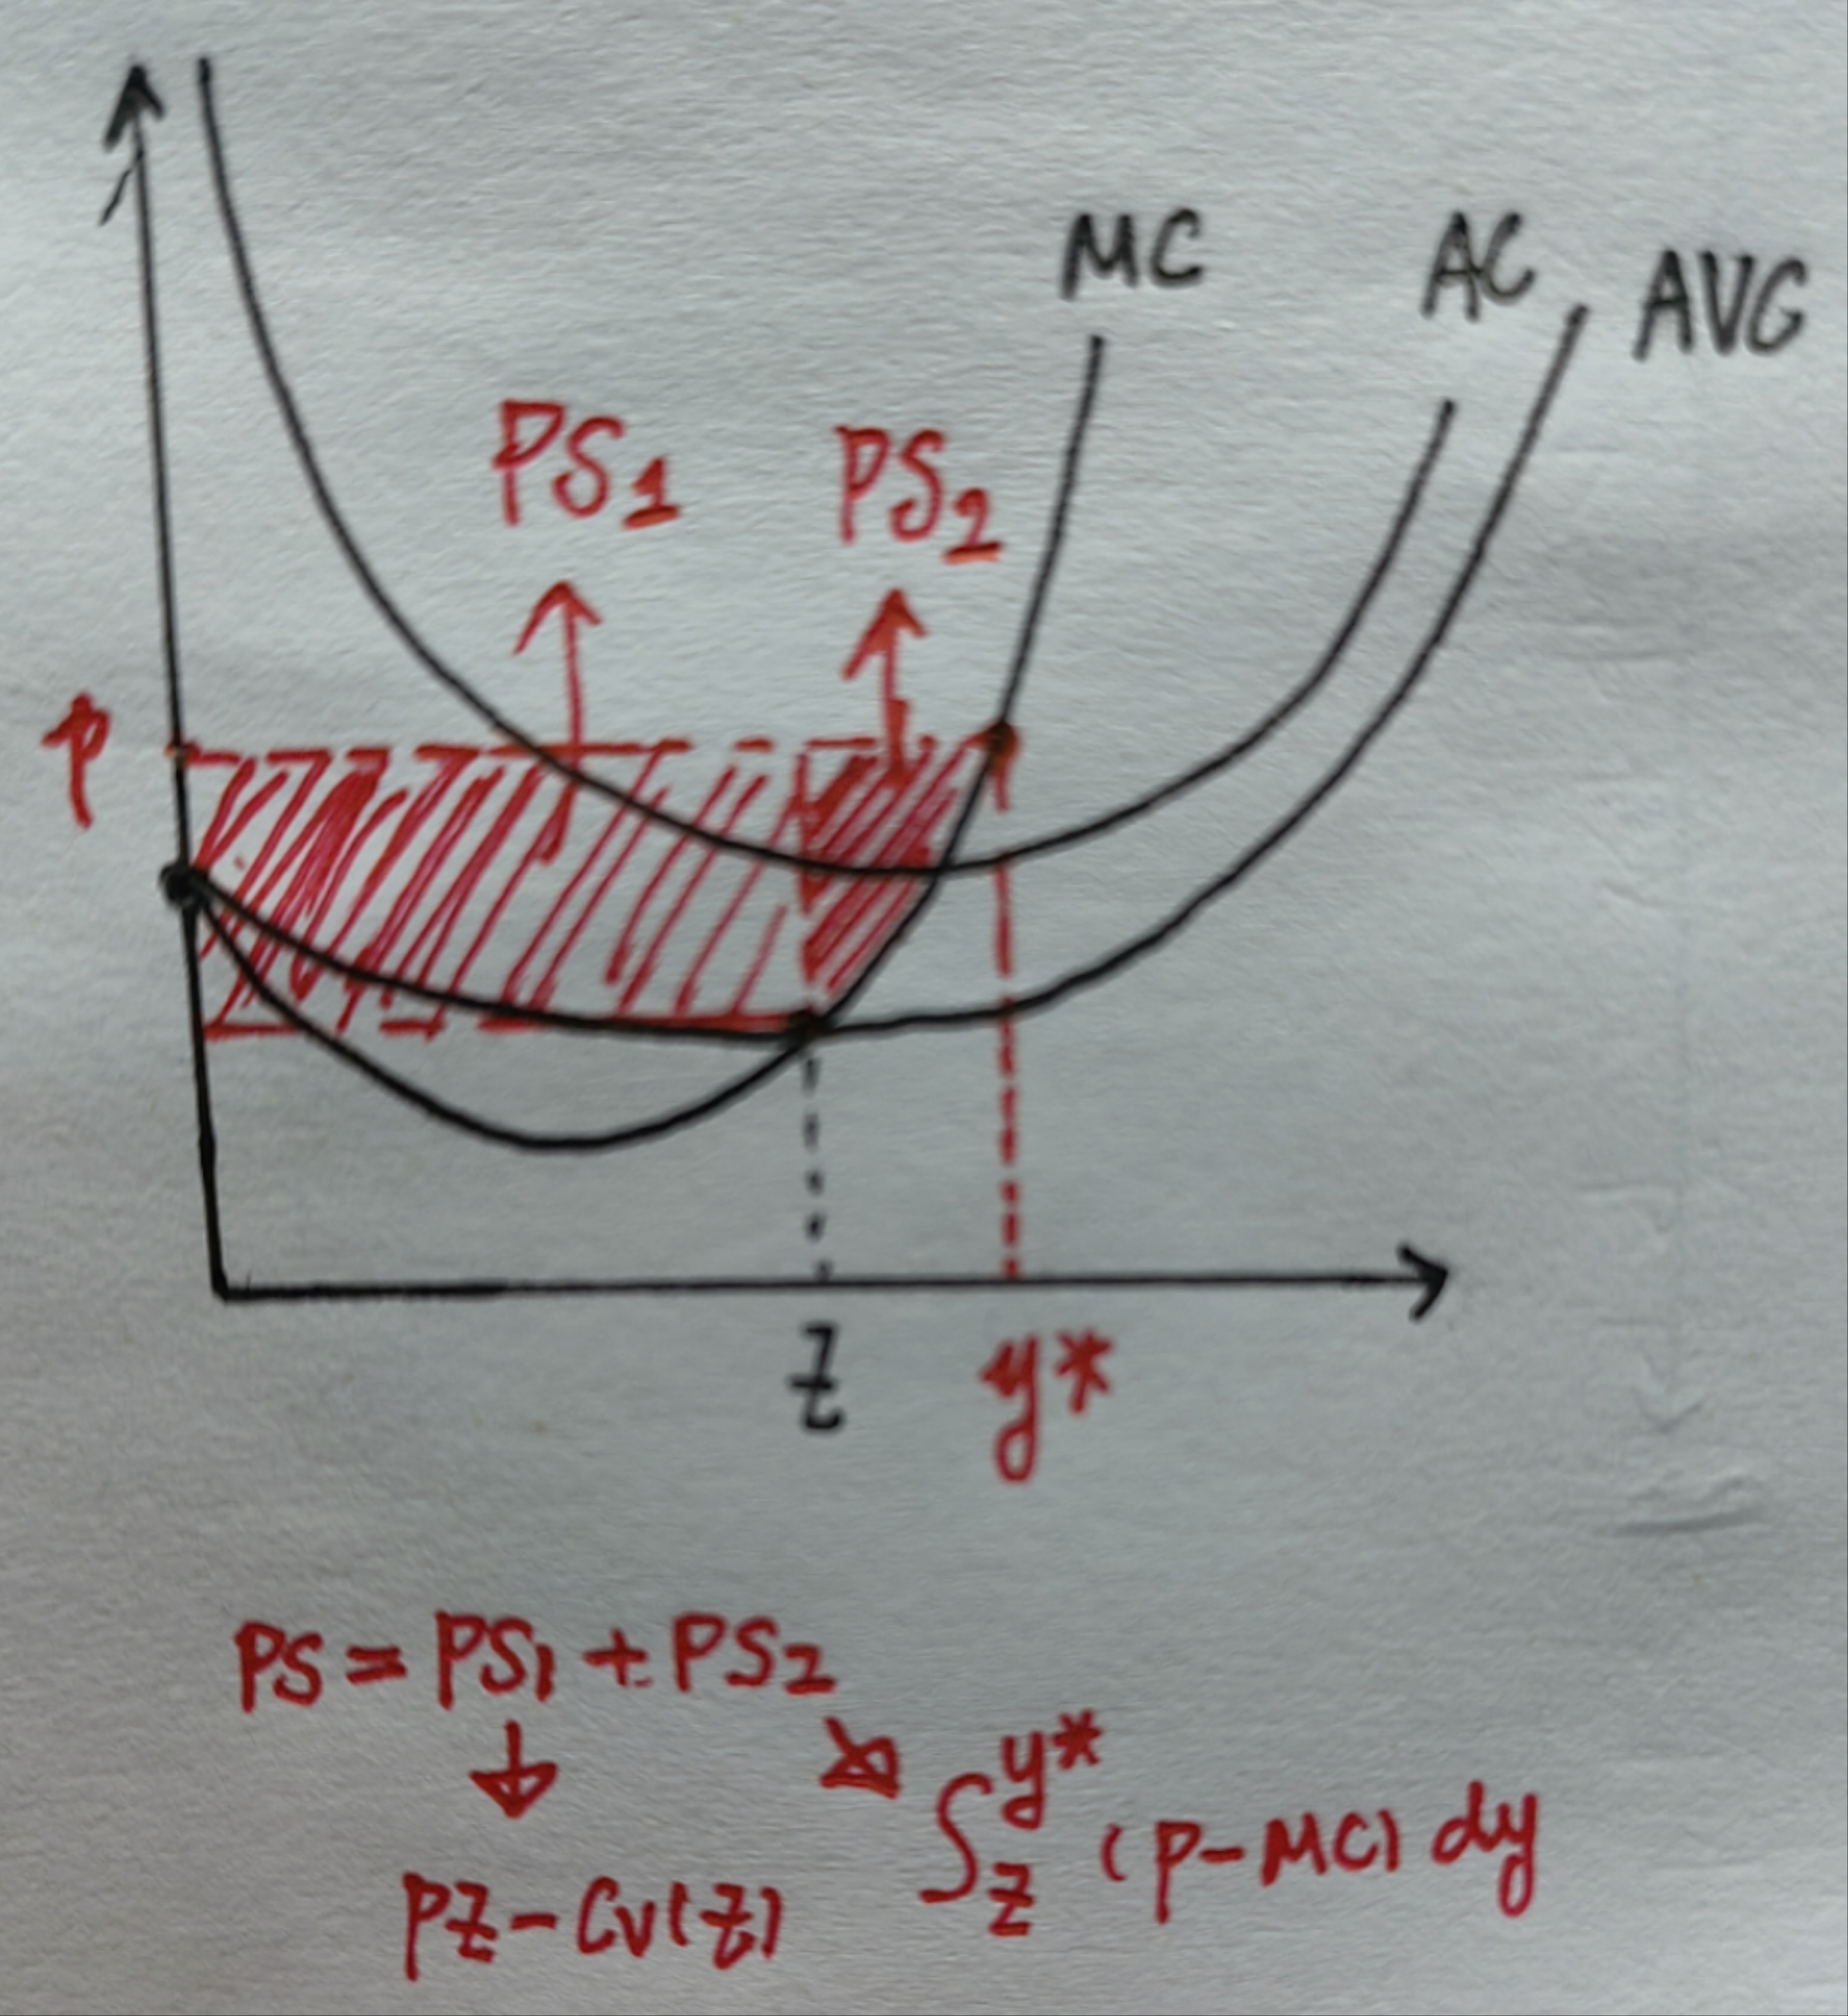 MC
AC
AVG
PS1
PS2
p
z
y*
PS = PS1 + PS2
pz - Cv(z)
∫_z^y* (p - MC) dy